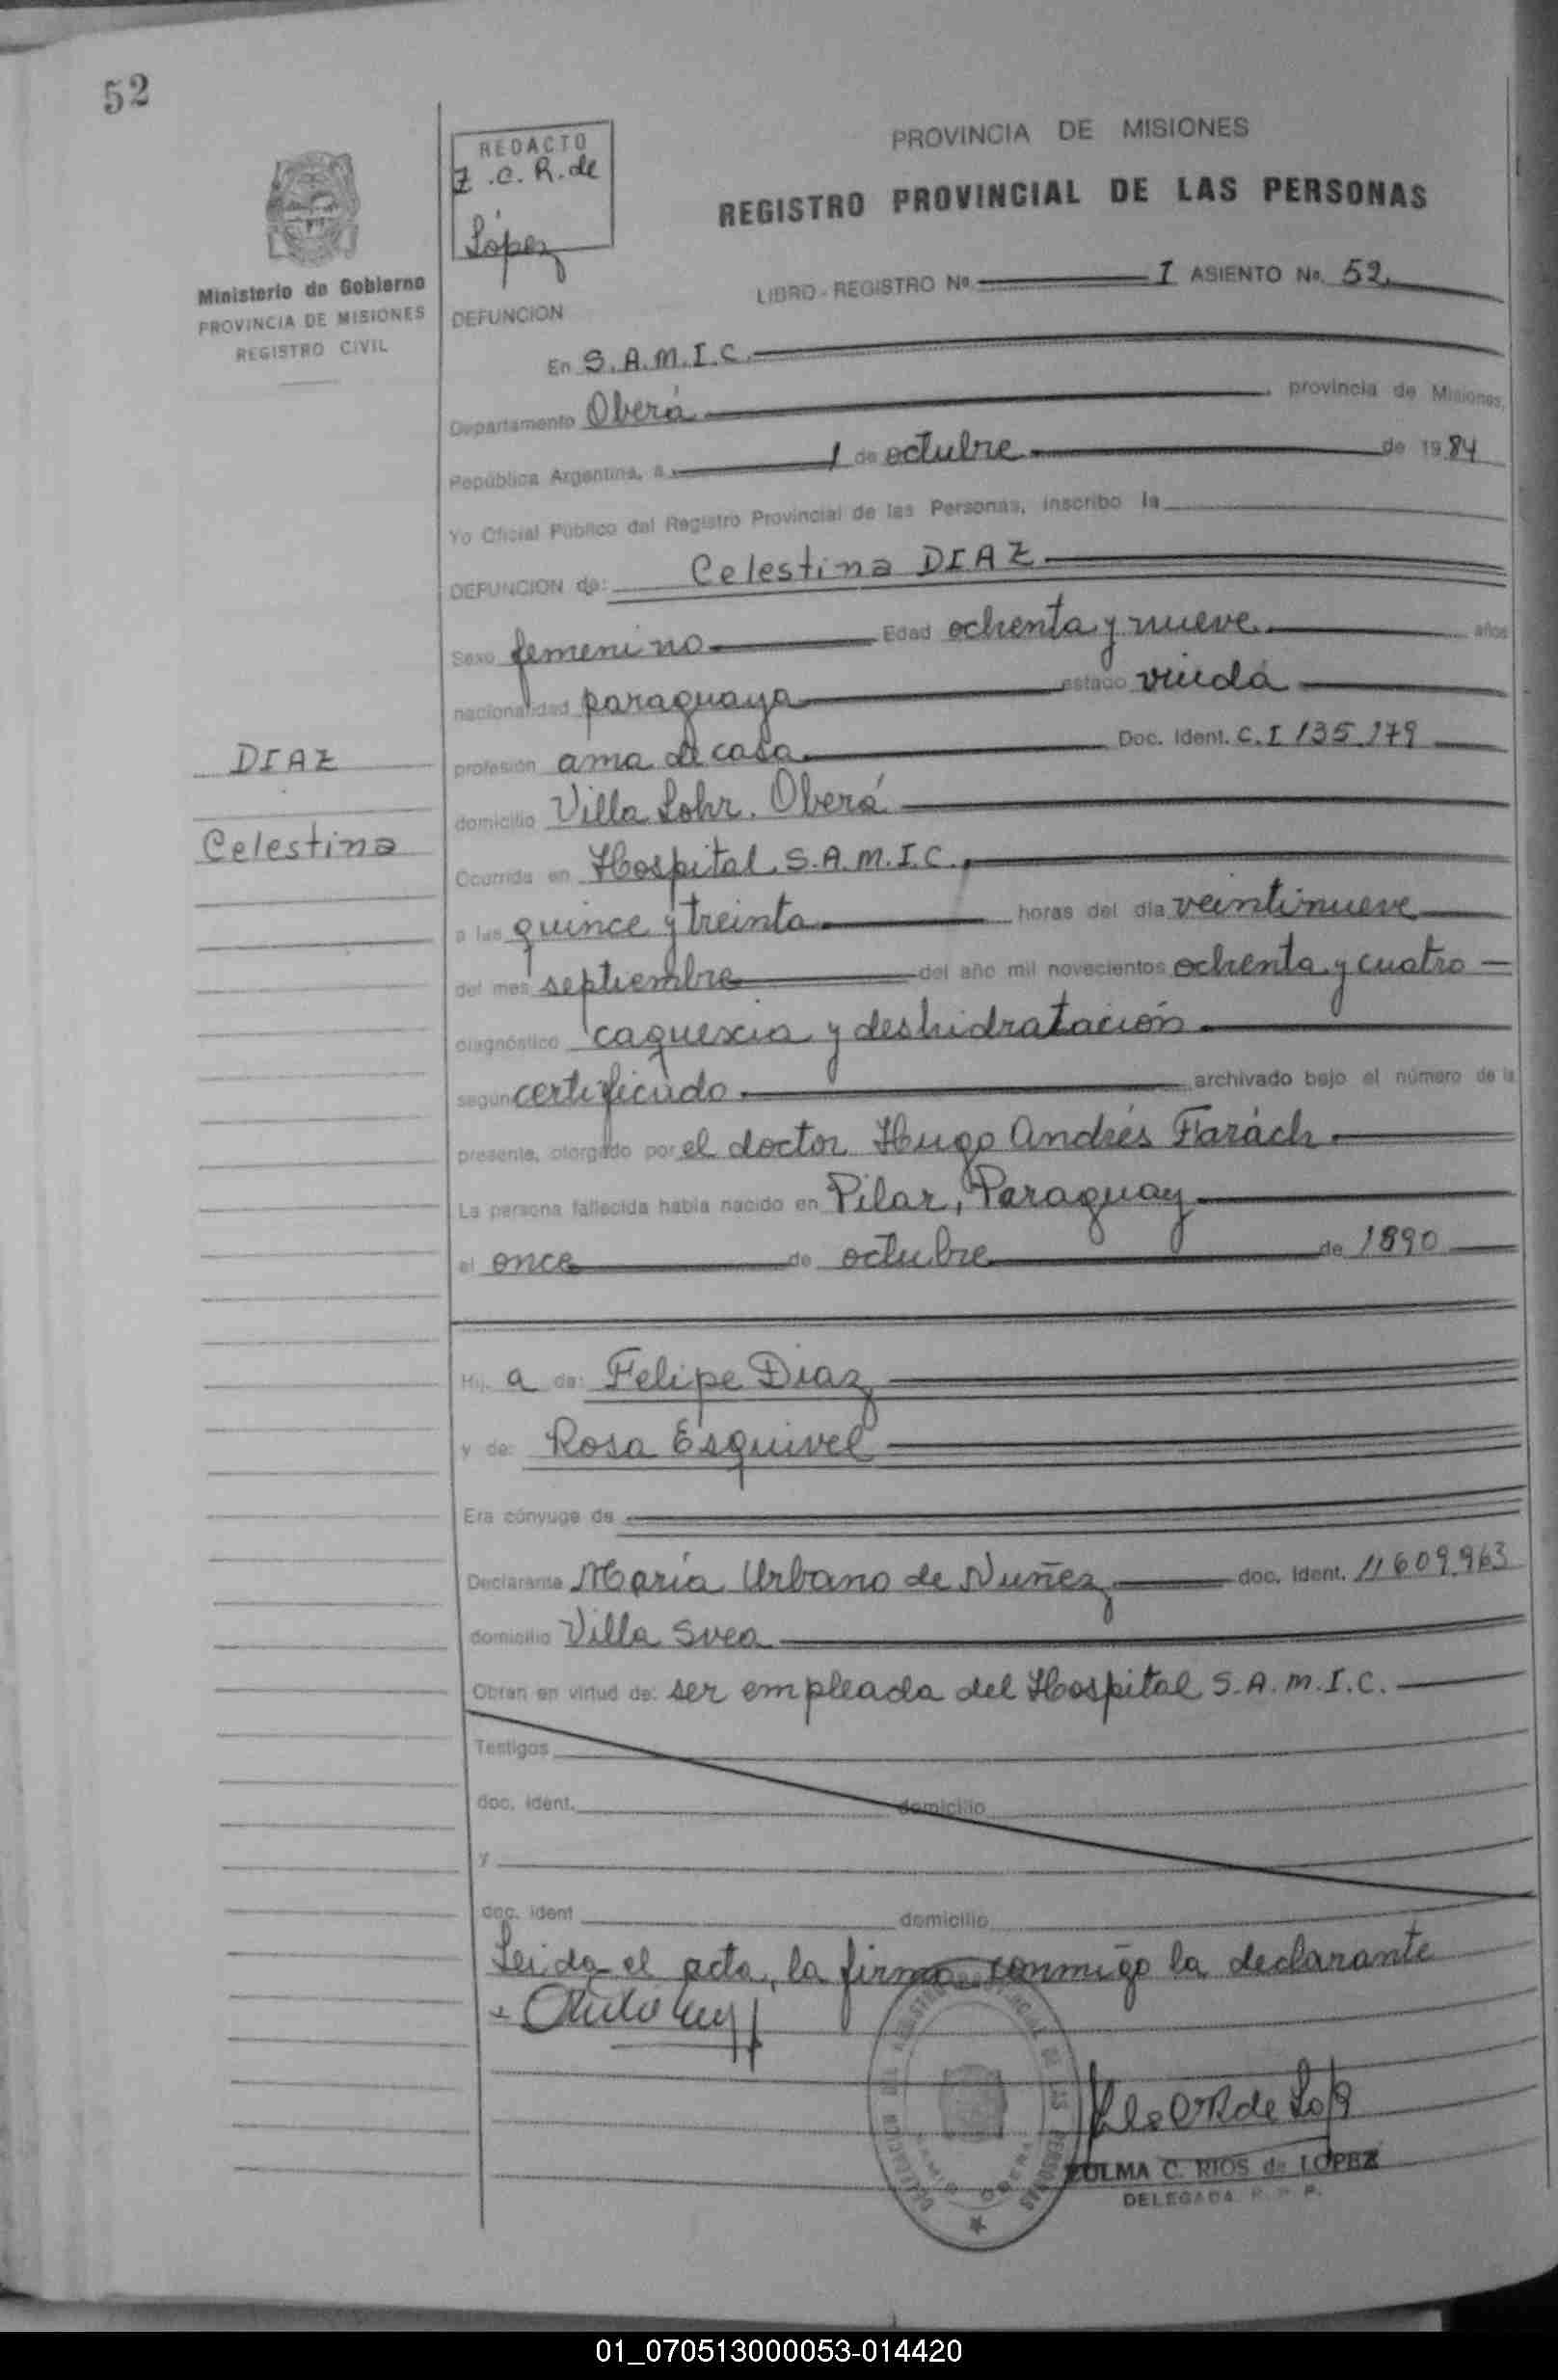 52
REDACTO
Z.C.R. de
López
Ministerio de Gobierno
PROVINCIA DE MISIONES
REGISTRO CIVIL
PROVINCIA DE MISIONES
REGISTRO PROVINCIAL DE LAS PERSONAS
LIBRO - REGISTRO No. I ASIENTO No. 52
DEFUNCION
En S.A.M.I.C.
Departamento Oberá, provincia de Misiones,
República Argentina, a 1 de octubre de 1984
Yo Oficial Público del Registro Provincial de las Personas, inscribo la
DEFUNCION de: Celestina DIAZ
Sexo femenino Edad ochenta y nueve años
nacionalidad paraguaya estado viuda
DIAZ
profesión ama de casa Doc. Ident. C.I 135.179
domicilio Villa Lohr. Oberá
Celestina
Ocurrida en Hospital S.A.M.I.C.,
a las quince y treinta horas del día veintinueve
del mes septiembre del año mil novecientos ochenta y cuatro
diagnóstico caquexia y deshidratación
según certificado archivado bajo el número de la
presente, otorgado por el doctor Hugo Andrés Farách
La persona fallecida había nacido en Pilar, Paraguay
el once de octubre de 1890
Hij a de: Felipe Diaz
y de: Rosa Esquivel
Era cónyuge de
Declarante María Urbano de Nuñez doc. Ident. 11609.963
domicilio Villa Svea
Obran en virtud de: ser empleada del Hospital S.A.M.I.C.
Testigos
doc. ident. domicilio
y
doc. ident domicilio
Leida el acta, la firma conmigo la declarante
ZULMA C. RIOS de LOPEZ
DELEGADA R. P. P.
01_070513000053-014420